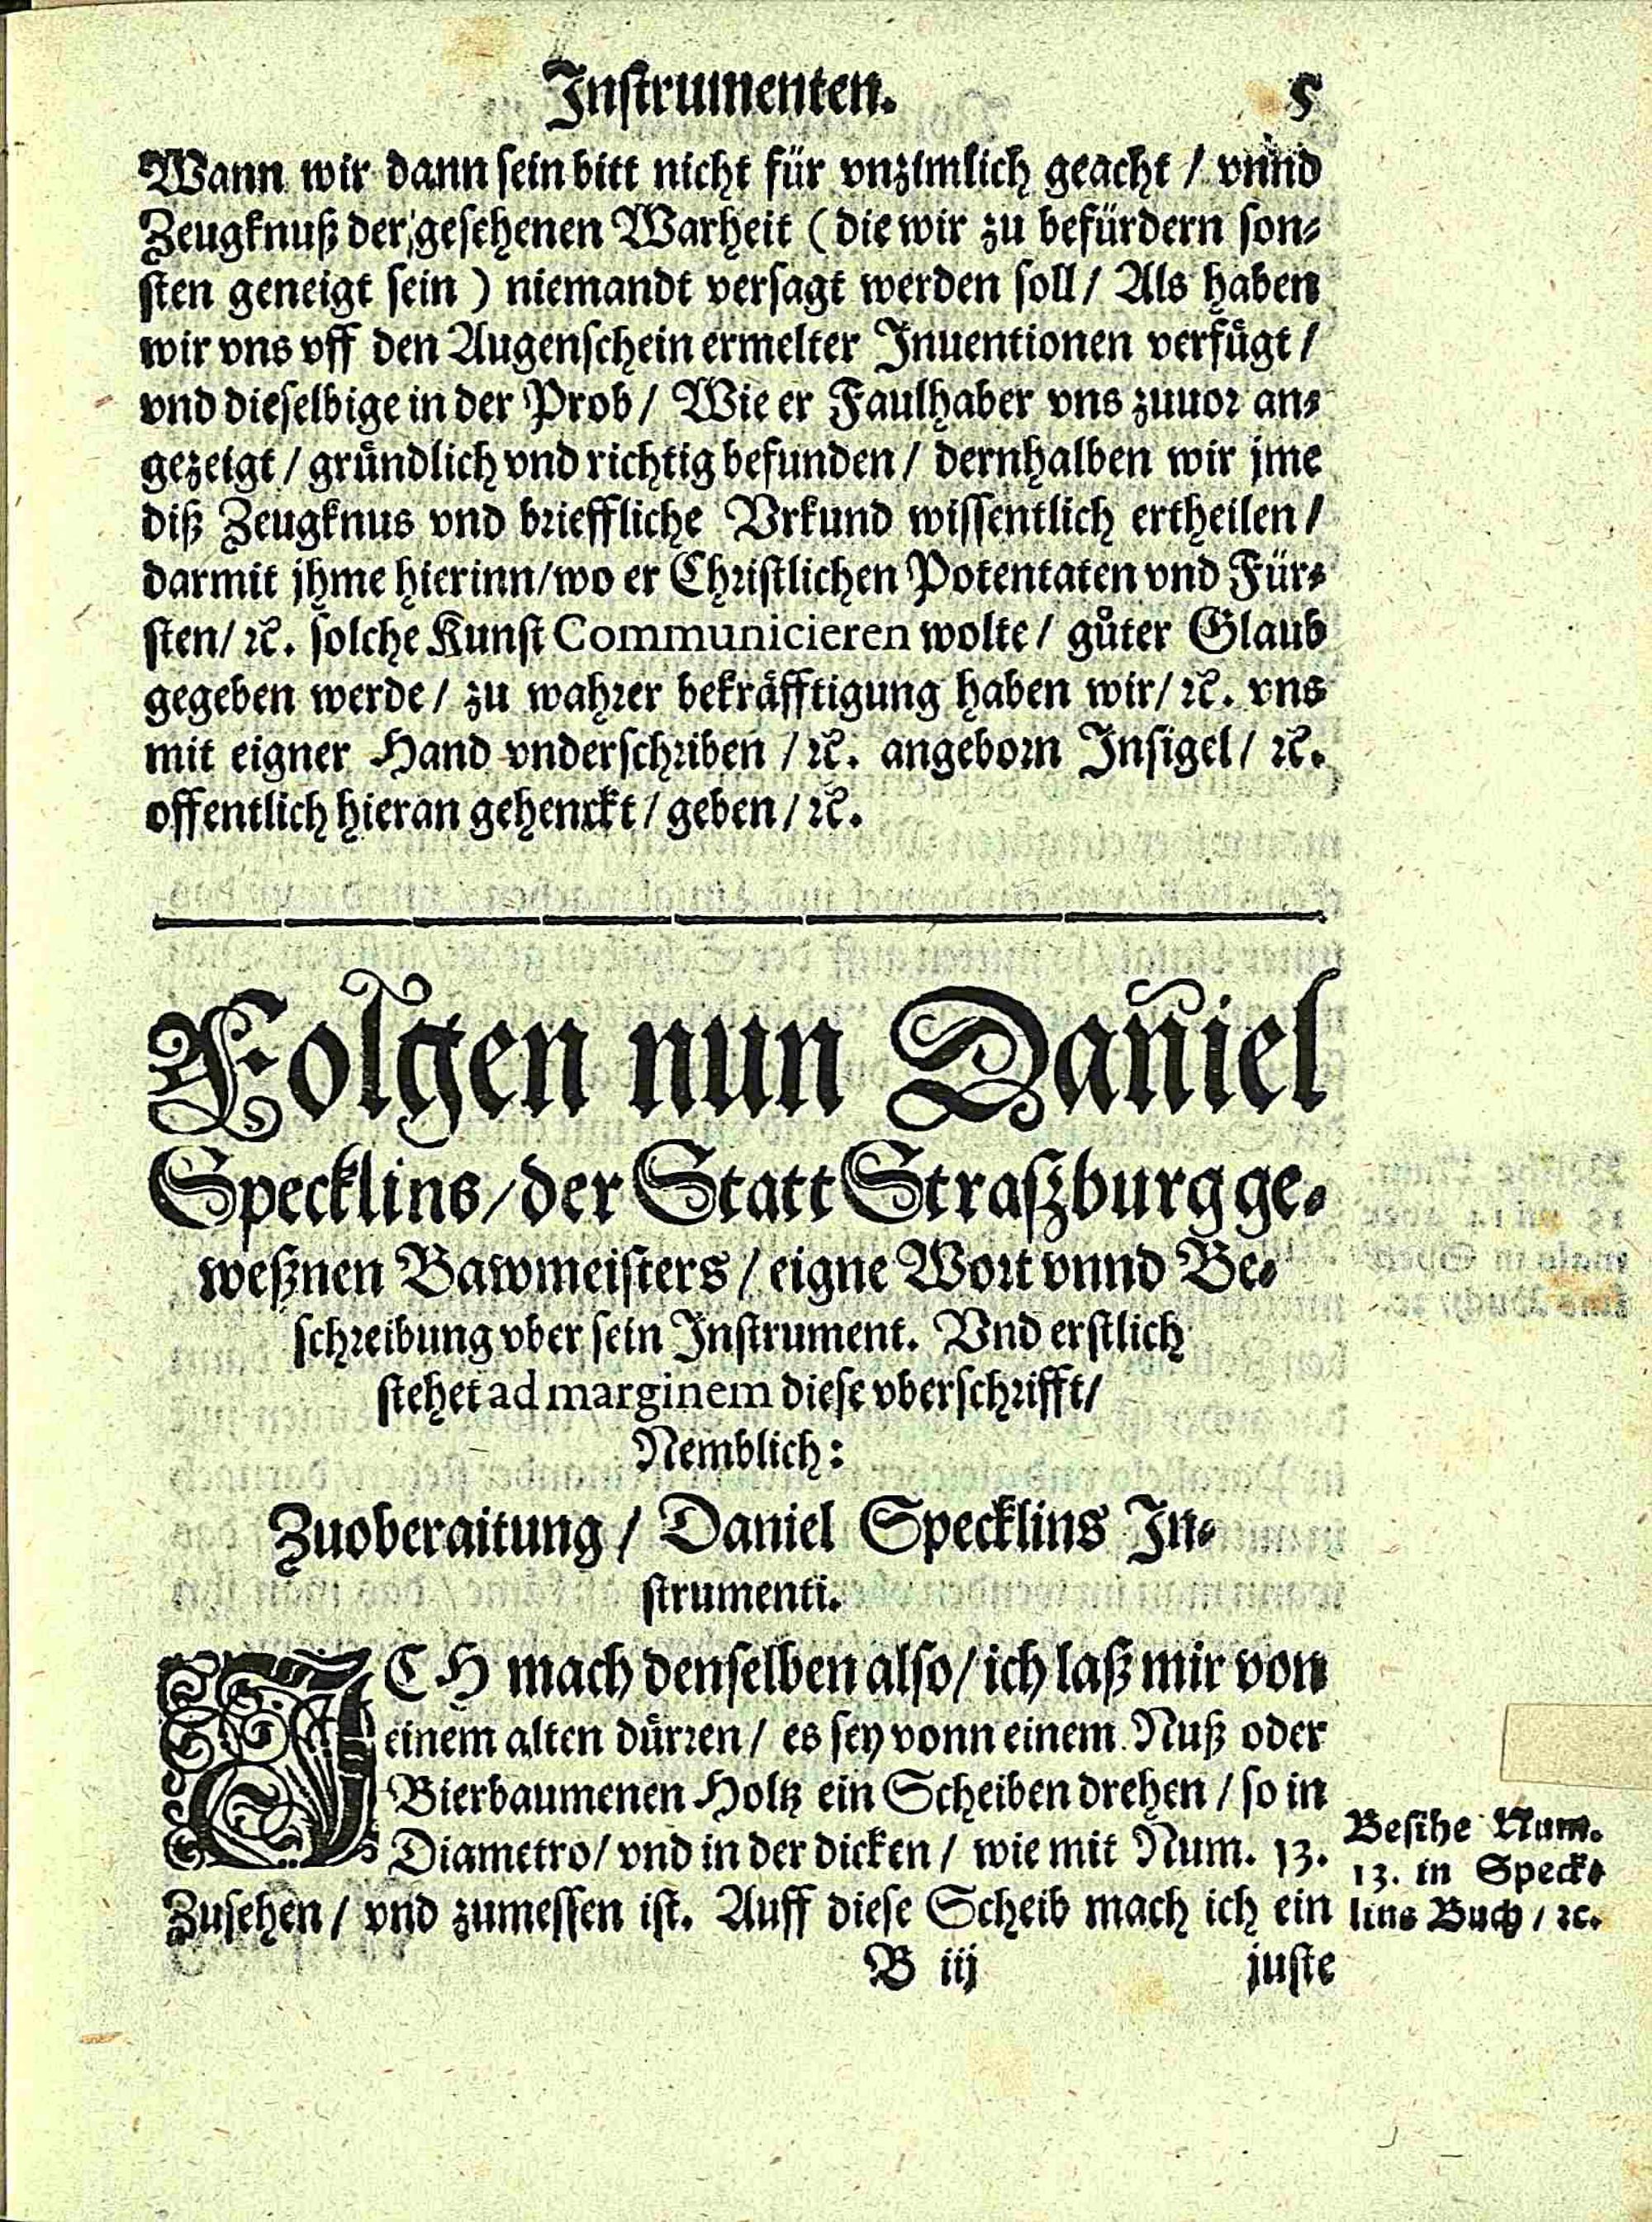 Instrumenten. 5
Wann wir dann sein bitt nicht für vnzimlich geacht / vnnd
Zeugknuß der gesehenen Warheit ( die wir zu befürdern son-
sten geneigt sein ) niemandt versagt werden soll / Als haben
wir vns vff den Augenschein ermelter Inuentionen verfuͤgt /
vnd dieselbige in der Prob / Wie er Faulhaber vns zuuor an-
gezeigt / gruͤndlich vnd richtig befunden / dernhalben wir jme
diß Zeugknus vnd brieffliche Vrkund wissentlich ertheilen /
darmit jhme hierinn / wo er Christlichen Potentaten vnd Für-
sten / ꝛc. solche Kunst Communicieren wolte / guͦter Glaub
gegeben werde / zu wahrer bekraͤfftigung haben wir / ꝛc. vns
mit eigner Hand vnderschriben / ꝛc. angeborn Insigel / ꝛc.
offentlich hieran gehenckt / geben / ꝛc.
Folgen nun Daniel
Specklins / der Statt Straßburg ge-
weßnen Bawmeisters / eigne Wort vnnd Be-
schreibung vber sein Instrument. Vnd erstlich
stehet ad marginem diese vberschrifft /
Nemblich :
Zuoberaitung / Daniel Specklins In-
strumenti.
ICH mach denselben also / ich laß mir von
einem alten duͤrren / es sey vonn einem Nuß oder
Bierbaumenen Holtz ein Scheiben drehen / so in
Diametro / vnd in der dicken / wie mit Num. 13.
Zusehen / vnd zumessen ist. Auff diese Scheib mach ich ein
Besihe Num.
13. in Speck-
lins Buch / ꝛc.
B iij juste